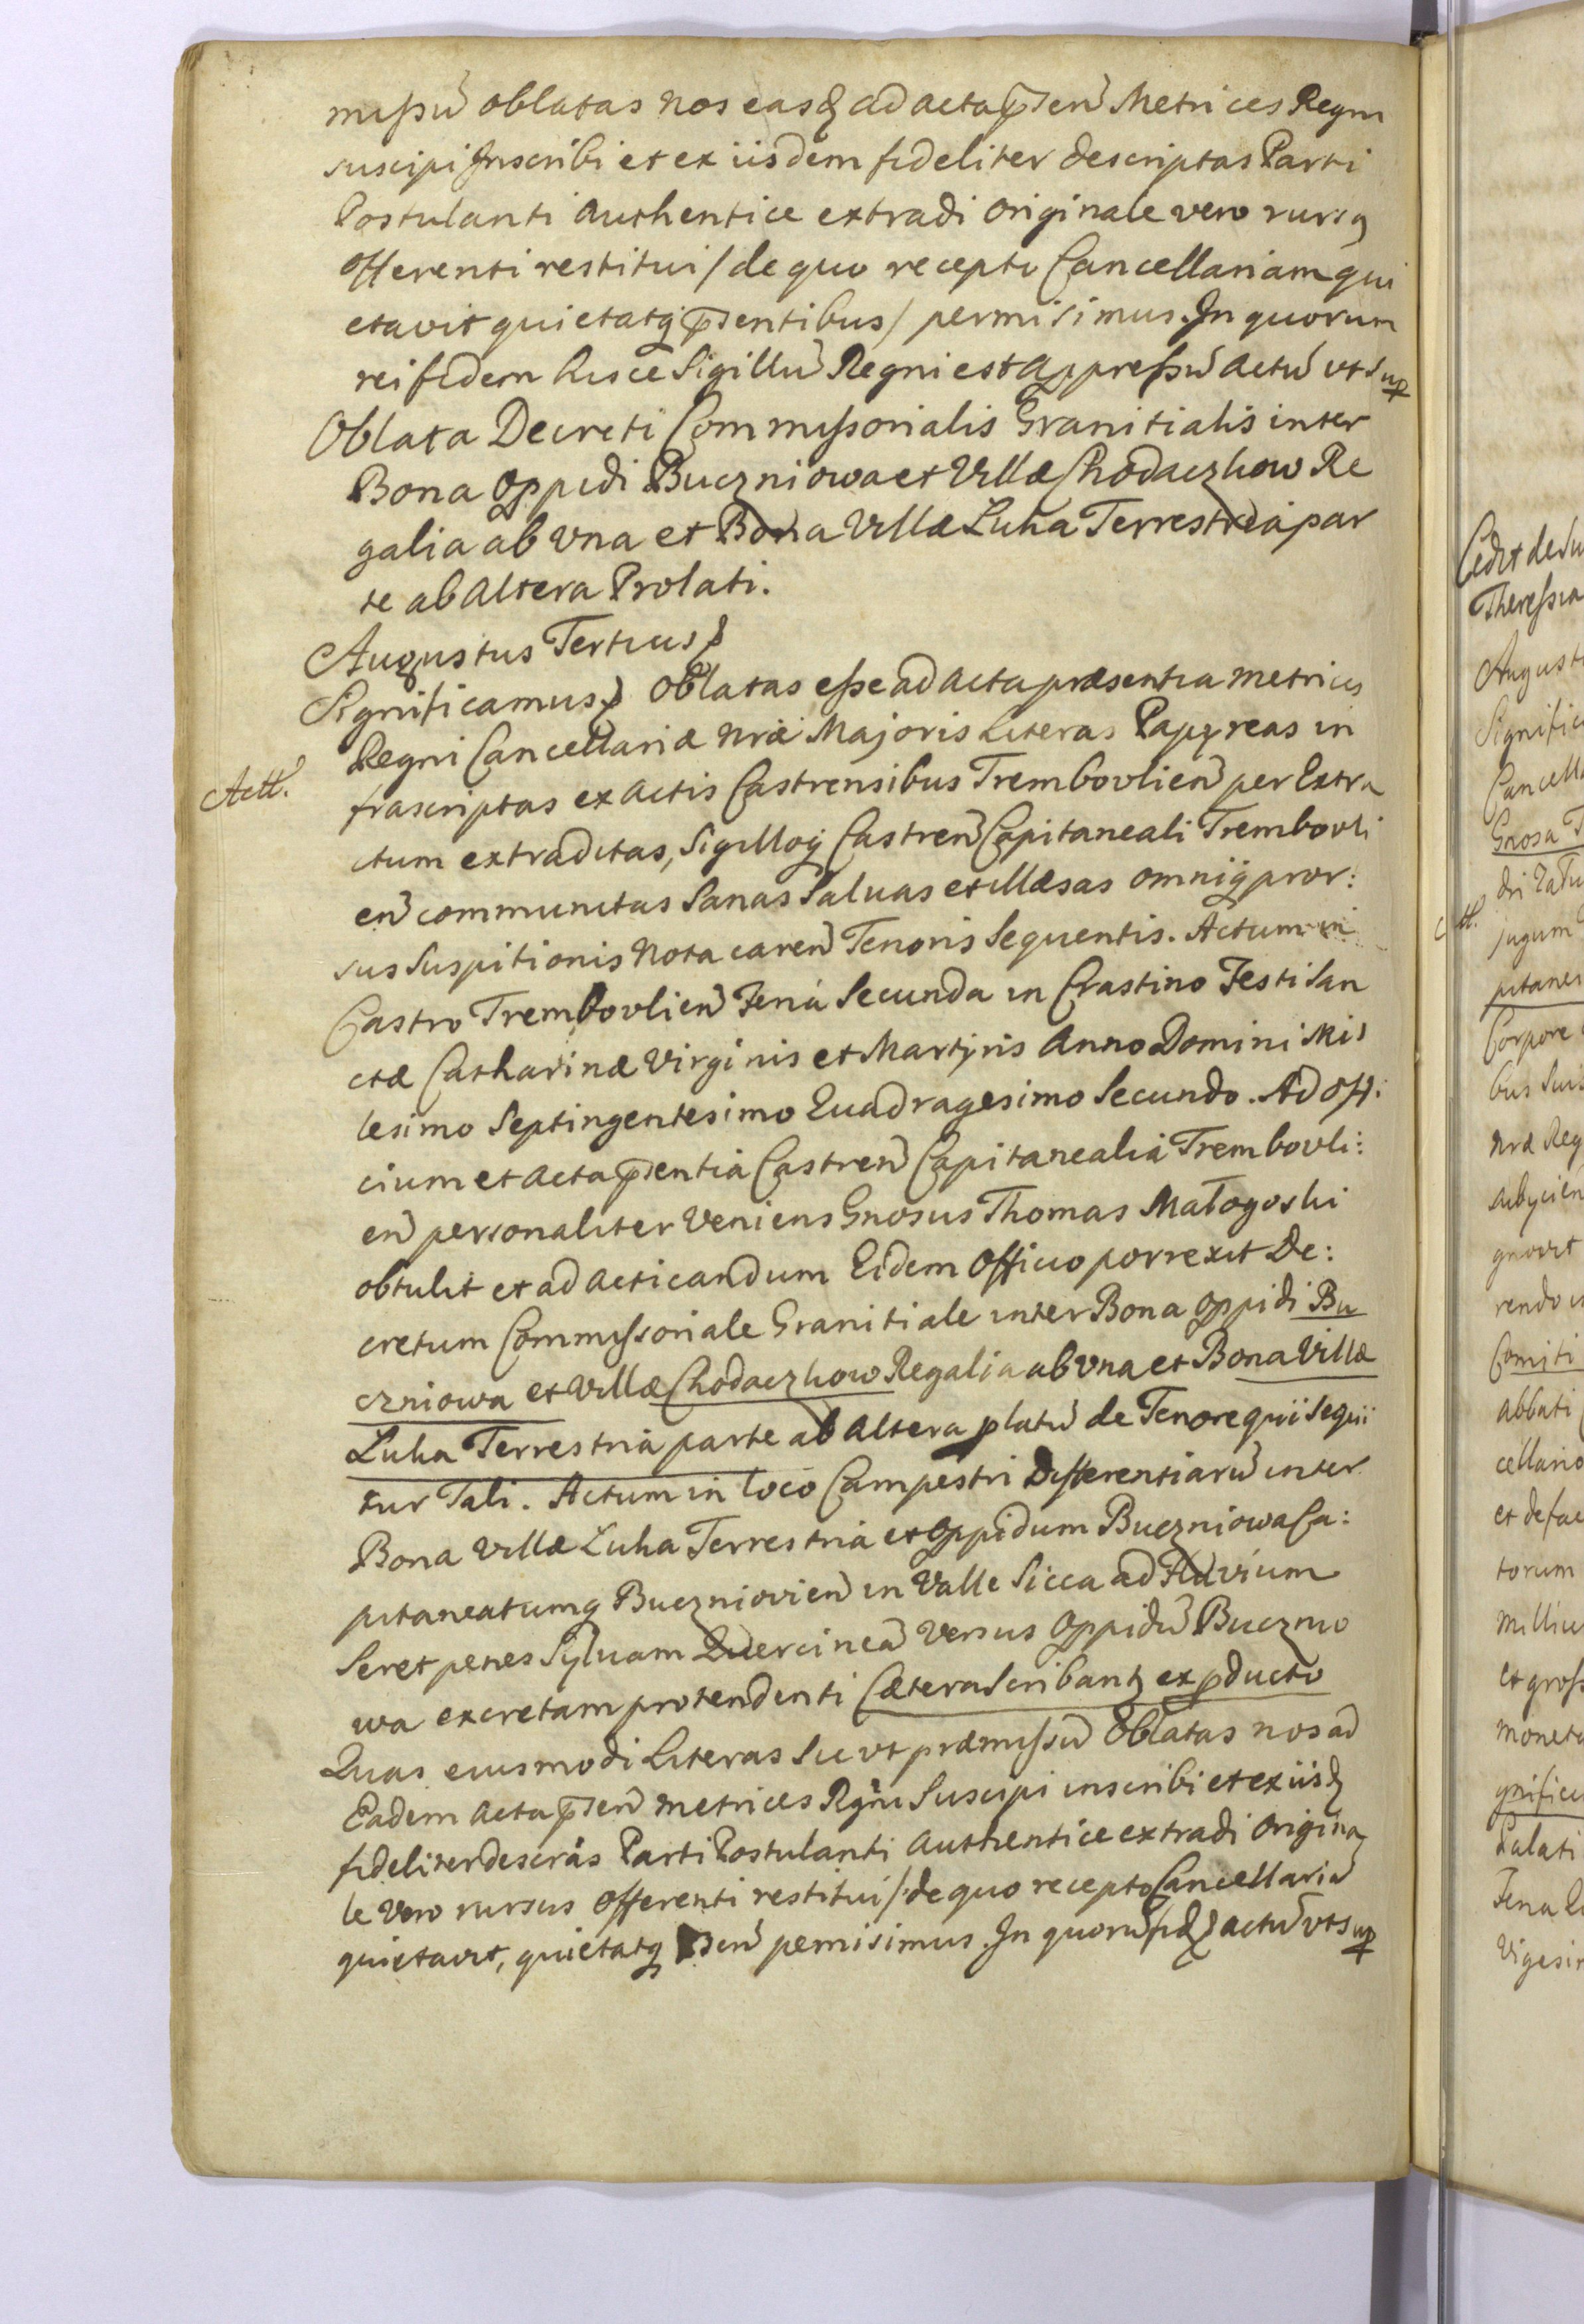 mißũ oblatas nos easq; ad acta p̃señ Metrices Regni
suscipi Inscribi et ex iisdem fideliter descriptas Parti
Postulanti Authentice extradi Originale vero rursq
offerenti restitui / de quo recepto Cancellariam qui
etavit quietatq; p̃sentibus / permisimus. In quorum
rei fidem hisce Sigillũ Regni est appreßũ Actũ ut sup
Oblata Decreti Commißorialis Granitialis inter
Bona Oppidi Buczniowa et Villæ Chodaczkow Re
galia ab Una et Bona Villæ Luka Terrestria par
te ab Altera Prolati.
Augustus Tertius
Significamus Oblatas eße ad acta præsentia metrices
Regni Cancellariæ nræ Majoris Literas Papyreas in
Actt.
frascriptas ex Actis Castrensibus Tremboulieñ per Extra
ctum extraditas, Sigilloq; Castreñ Capitaneali Trembouli
eñ communitas Sanas Salvas et illæsas omniq; pror:
sus Suspitionis Nota careñ Tenoris Sequentis. Actum in
Castro Tremboulieñ Feria Secunda in Crastino Festi San
ctæ Catharinæ Virginis et Martyris Anno Domini Mil
lesimo Septingentesimo Quadragesimo Secundo. Ad Offi:
cium et Acta p̃sentia Castreñ Capitanealia Trembouli:
eñ personaliter Veniens Gnosus Thomas Małogoski
obtulit et ad acticandum Eidem Officio porrexit De:
cretum Commißoriale Granitiale inter Bona Oppidi Bu
czniowa et Villæ Chodaczkow Regalia ab Una et Bona Villæ
Luka Terrestria parte ab Altera platũ de Tenore qui sequi
tur Tali. Actum in loco Campestri Differentiarũ inter
Bona Villæ Luka Terrestria et Oppidum Buczniowa Ca:
pitaneatumq; Buczniovieñ in Valle Sicca ad Fluvium
Seret penes Sylvam Quercineã Versus Oppidũ Bucznio
wa excretam protendenti Cætera Scribantq; ex pducto
Quas eiusmodi Literas Sic ut præmißũ Oblatas nos ad
Eadem Acta p̃señ metrices Rgni Suscipi inscribi et ex iisd
fideliter descrãs Parti Postulanti Authentice extradi Origina
le Vero rursus Offerenti restitui /: de quo recepto Cancellariã
quietavit, quietatq; p̃señ permisimus. In quorũ fid; actũ ut sup